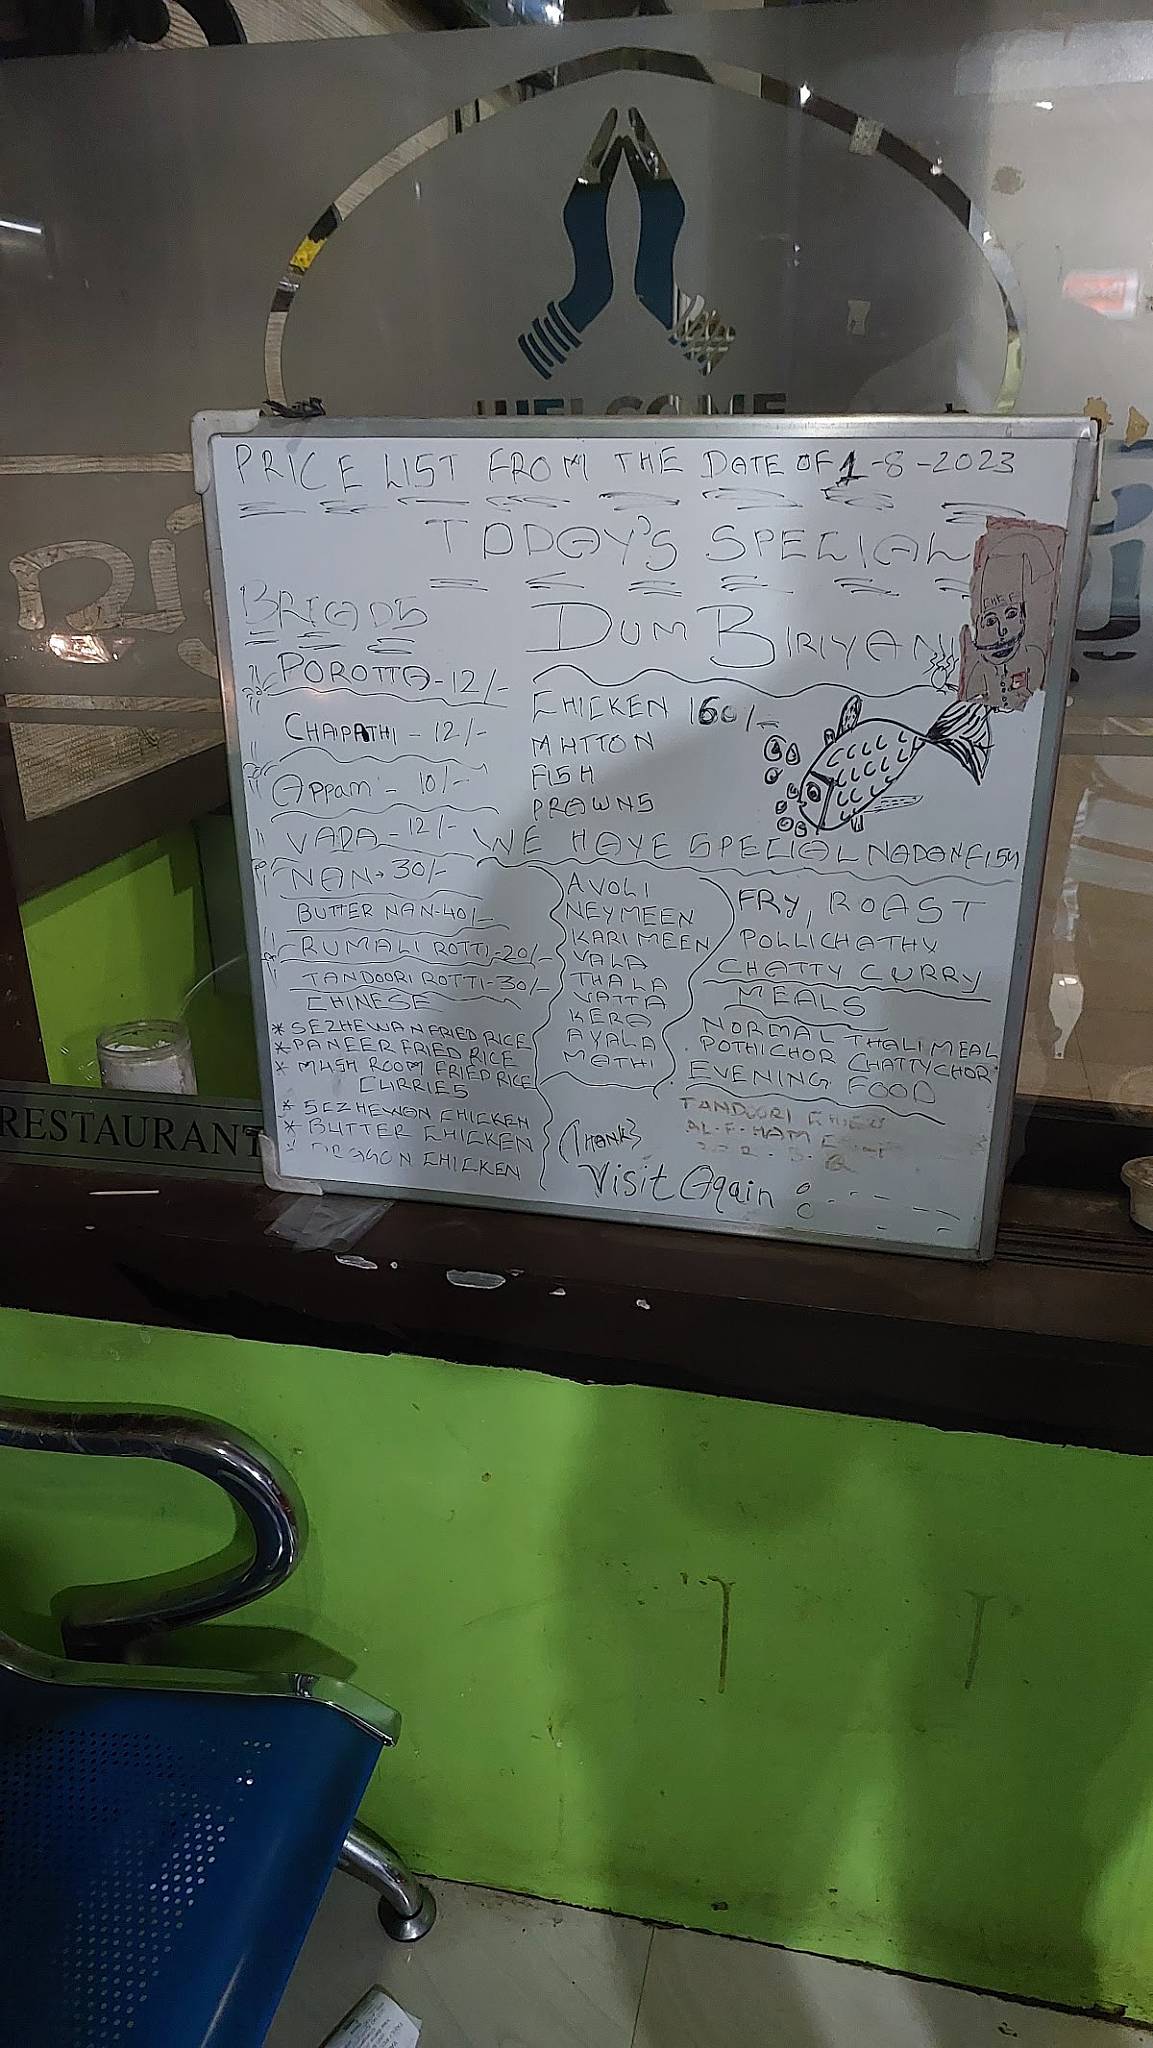 WELCOME
PRICE LIST FROM THE DATE OF 1-8-2023
TODAY'S SPECIAL
CHEF
BRIADS
DUM BIRIYANI
POROTTA-12/-
CHAPATHI - 12/-
APPAM - 10/-
VADA - 12/-
NAN - 30/-
BUTTER NAN-40/-
RUMALI ROTTI-20/-
TANDOORI ROTTI-30/-
CHINESE
* SEZHEWAN FRIED RICE
* PANEER FRIED RICE
* MUSH ROOM FRIED RICE
CURRIES
* SEZHEWAN CHICKEN
* BUTTER CHICKEN
* DRAGON CHICKEN
CHICKEN 160/-
MUTTON
FISH
PRAWNS
WE HAVE SPECIAL NADAN FISH
AVOLI
NEYMEEN
KARIMEEN
VALA
THALA
VATTA
KERA
AYALA
MATHI
FRY, ROAST
POLLICHATHY
CHATTY CURRY
MEALS
NORMAL THALI MEAL
POTHICHOR CHATTYCHOR
EVENING FOOD
TANDOORI
(THANKS)
Visit Again
RESTAURANT